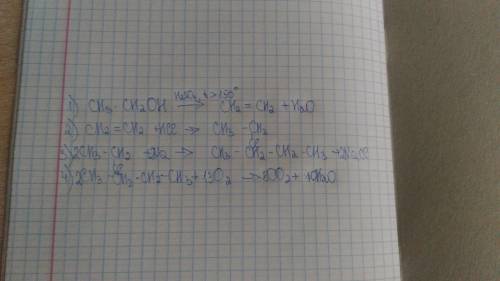 1) CH3-CH2OH H2SO4, t>150° → CH2=CH2 + H2O
2) CH2=CH2 + HCl → CH3-CH2
Cl
3) 2CH3-CH2 + 2Na → CH3-CH2-CH2-CH3 + 2NaCl
Cl
4) 2CH3-CH2-CH2-CH3 + 13O2 → 8CO2 + 10H2O